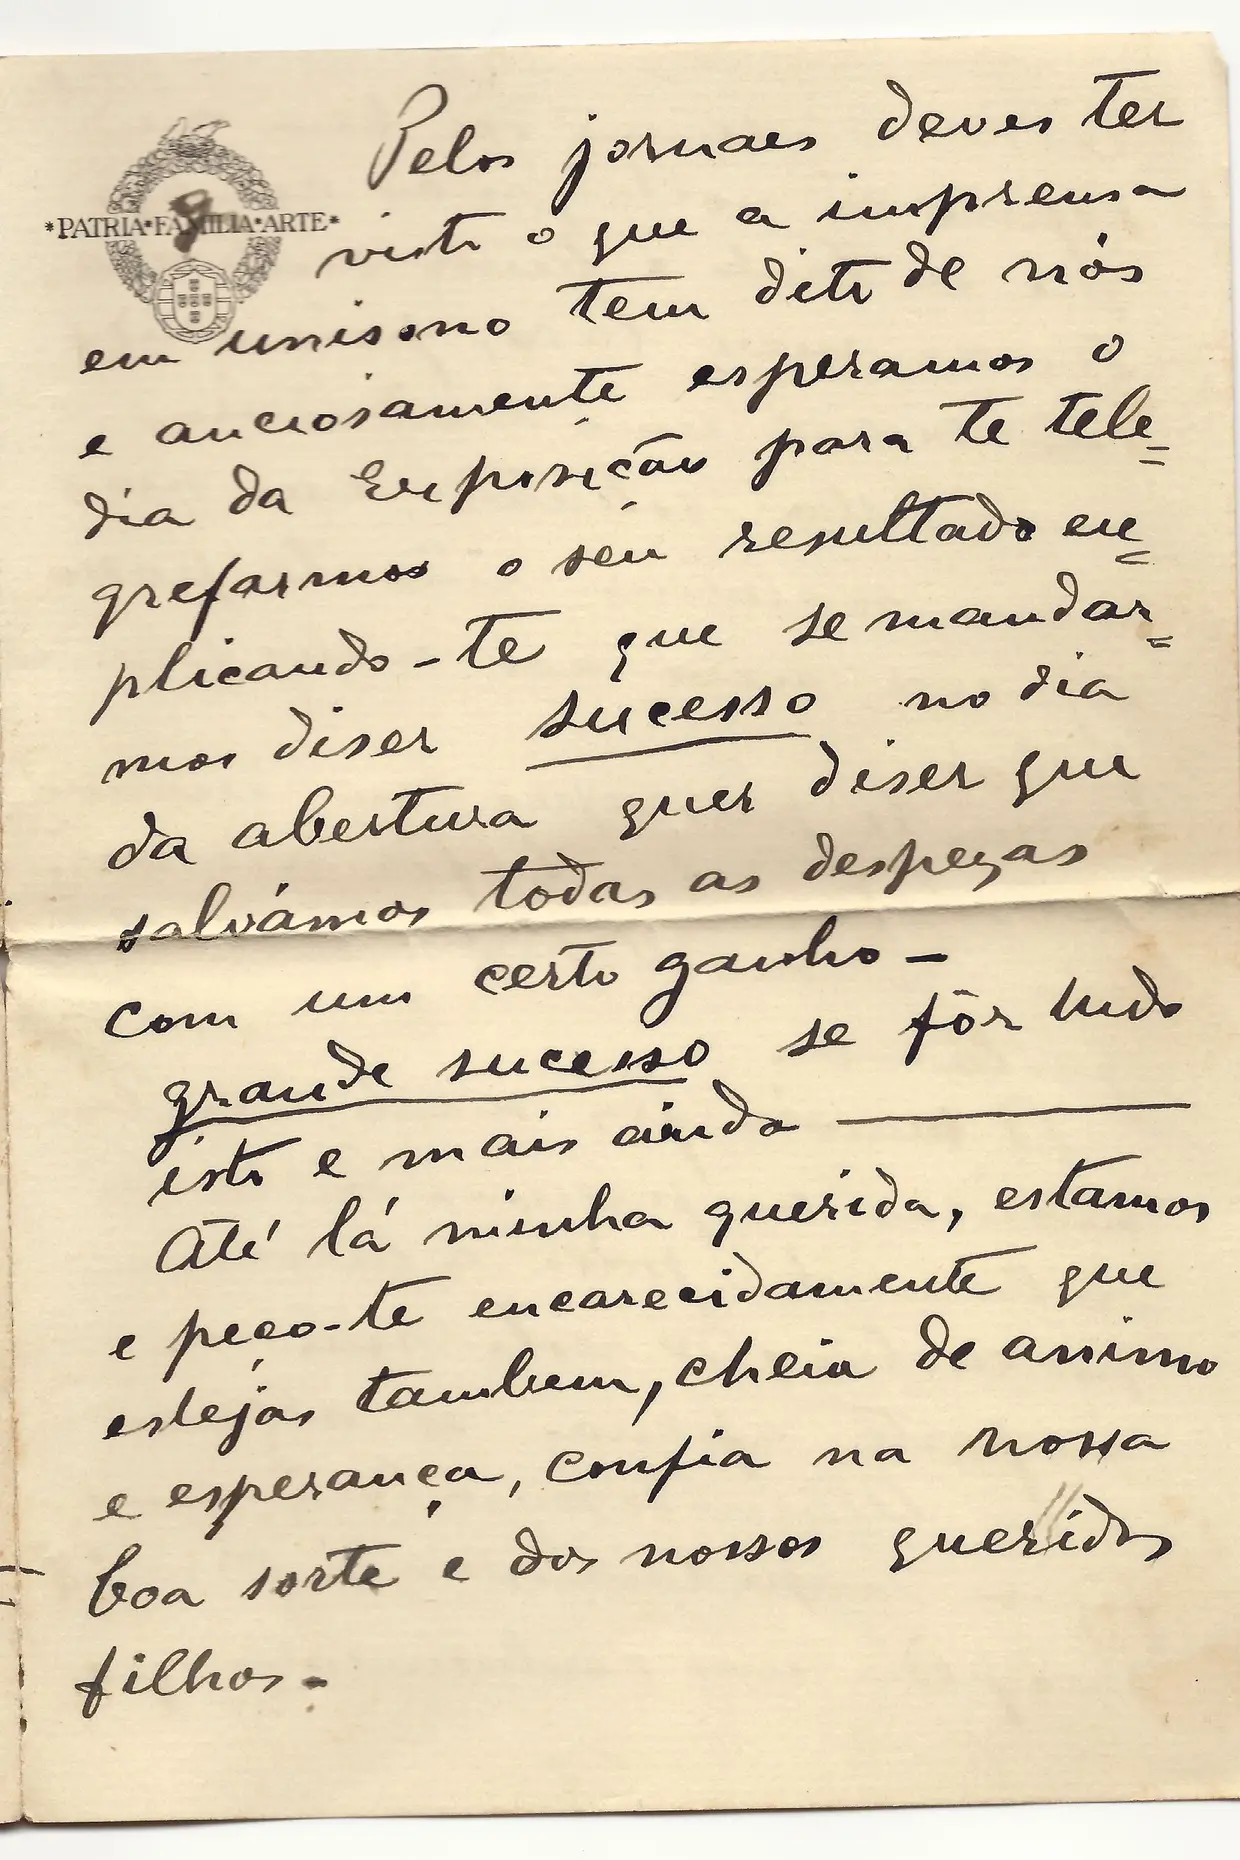 *PATRIA*FAMILIA*ARTE*
Pelos jornaes deves ter
visto o que a imprensa
em unisono tem dito de nós
e anciosamente esperamos o
dia da Exposição para te tele=
grafarmos o seu resultado ex=
plicando-te que se mandar=
mos diser sucesso no dia
da abertura quer diser que
salvámos todas as despezas
com um certo ganho —
grande sucesso se fôr tudo
isto e mais ainda —
Até lá minha querida, estamos
e peço-te encarecidamente que
estejas tambem, cheia de animo
e esperança, confia na nossa
boa sorte e dos nossos queridos
filhos.-